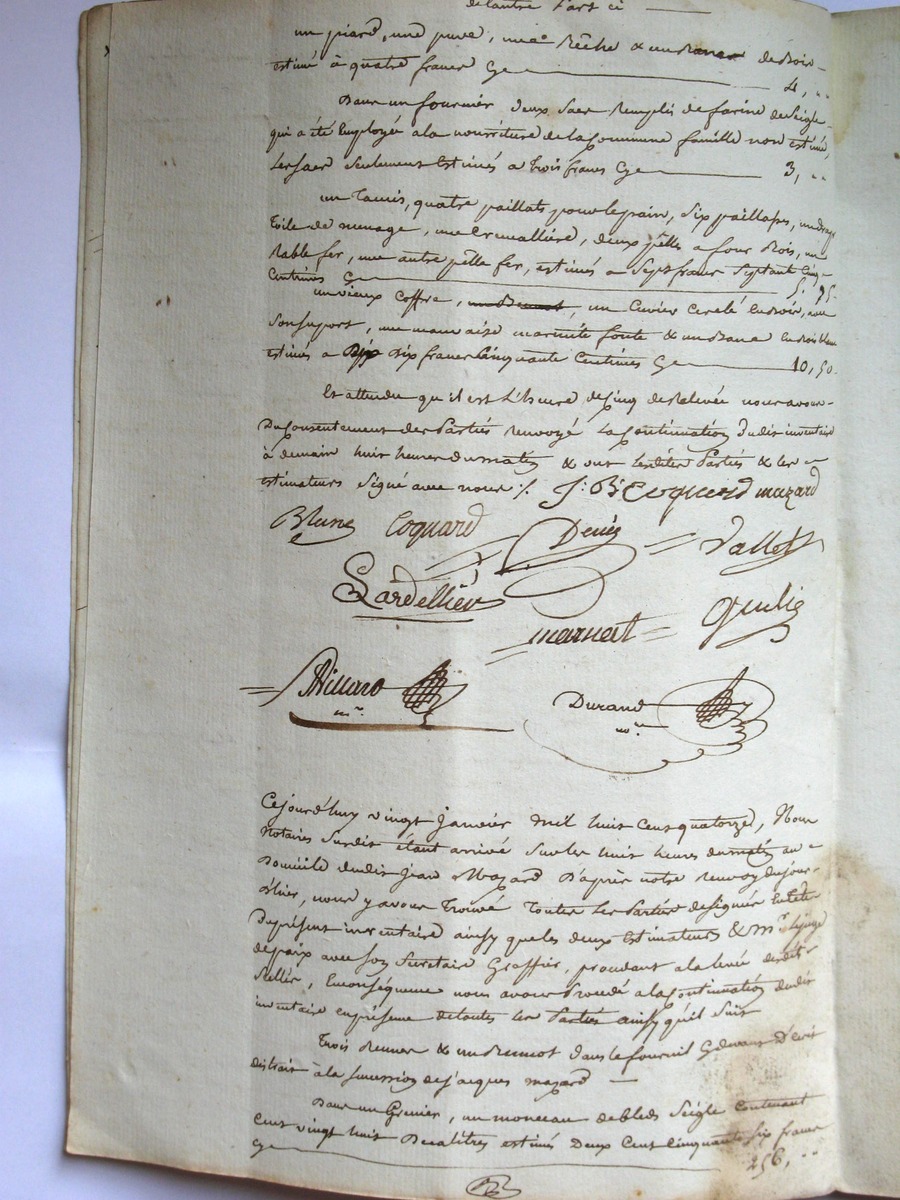 de l'autre part ci
un piard, une puve, une Bêche & un de Bois
estimé à quatre francs Cy 4, "
Dans un fournier deux sacs Remplis de farine de Seigle
qui a été Employé à la nourriture de la Commune famille non estimé,
Les sacs seulement Estimés a Trois francs Cy 3, "
un Tamis, quatre paillats pour le pain, Six paillasses, un drap
Toile de menage, une Cremallière, deux pelle a four Bois, un
Rable fer, une autre pelle fer, estimés a Sept francs Septante Cinq
Centimes Cy 75.
un vieux Coffre, un Cuvier Cerclé en Bois, avec
Son suport, une mauvaise marmite fonte & un Banc en Bois blanc
estimés a Dix francs Cinquante Centimes Cy 10, 50.
Et attendu qu'il est L'heure de Cinq de Relevée nous avons
Du Consentement des Parties Renvoyé La Continuation Dudit inventaire
à demain huit heures du matin & ont Lesdites Parties & les
estimateurs Signé avec nous ./. J: B: Coquard mazard
Blanc Coquard Denis Vallet
Lardellier
marnat
Billard
nre.
Durand
nore
Cejourd'huy vingt Janvier mil huit Cent quatorze, Nous
Notaires Susdits étant arrivé Sur les huit heures du matin au
Domicile dudit Jean Mazard D'après notre Renvoy du jour
D'hier, nous y avons Trouvé Toutes Les Parties designées En tête
Du présent inventaire ainsy que les deux Estimateurs & Mr. le juge
de paix avec son Secretaire Greffier, procedant a la levée desdits
Scellés, En Conséquence nous avons Procédé a la Continuation dudit
inventaire en présence de toutes Les Parties ainsy qu'il Suit
Trois Bennes & un Bennot dans le fournil Cydevant Décrit
distrait à la Succession de Jacques mazard
Dans un Grenier, un monceau de bled Seigle Contenant
Cent vingt huit Decalitres estimés Deux Cent Cinquante Six francs
Cy 256, "